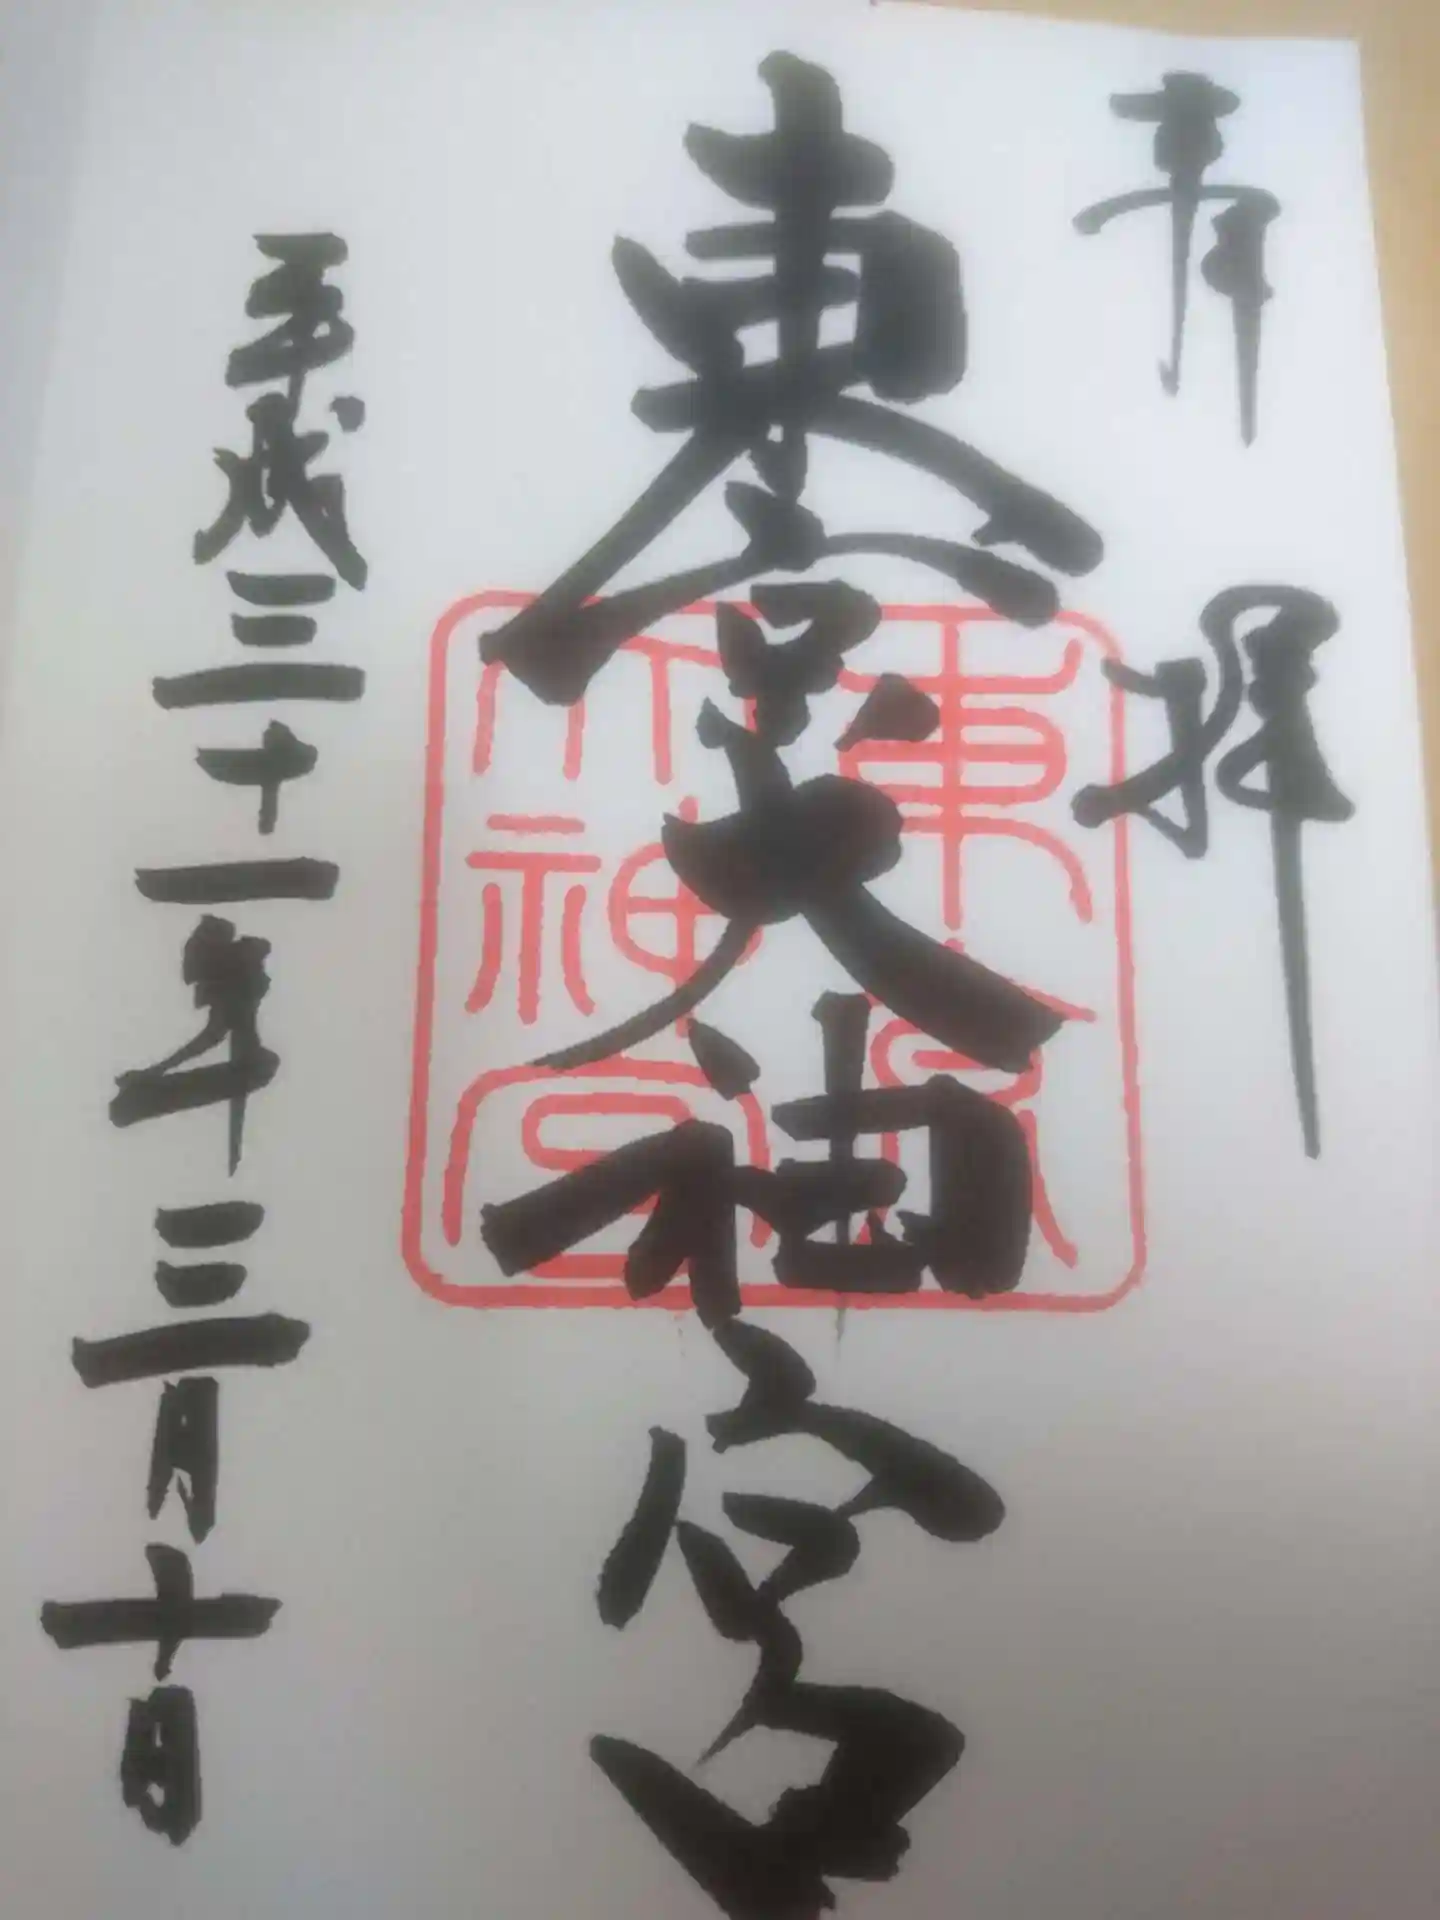 奉拝
東京大神宮
東京大神宮
平成三十一年三月十日